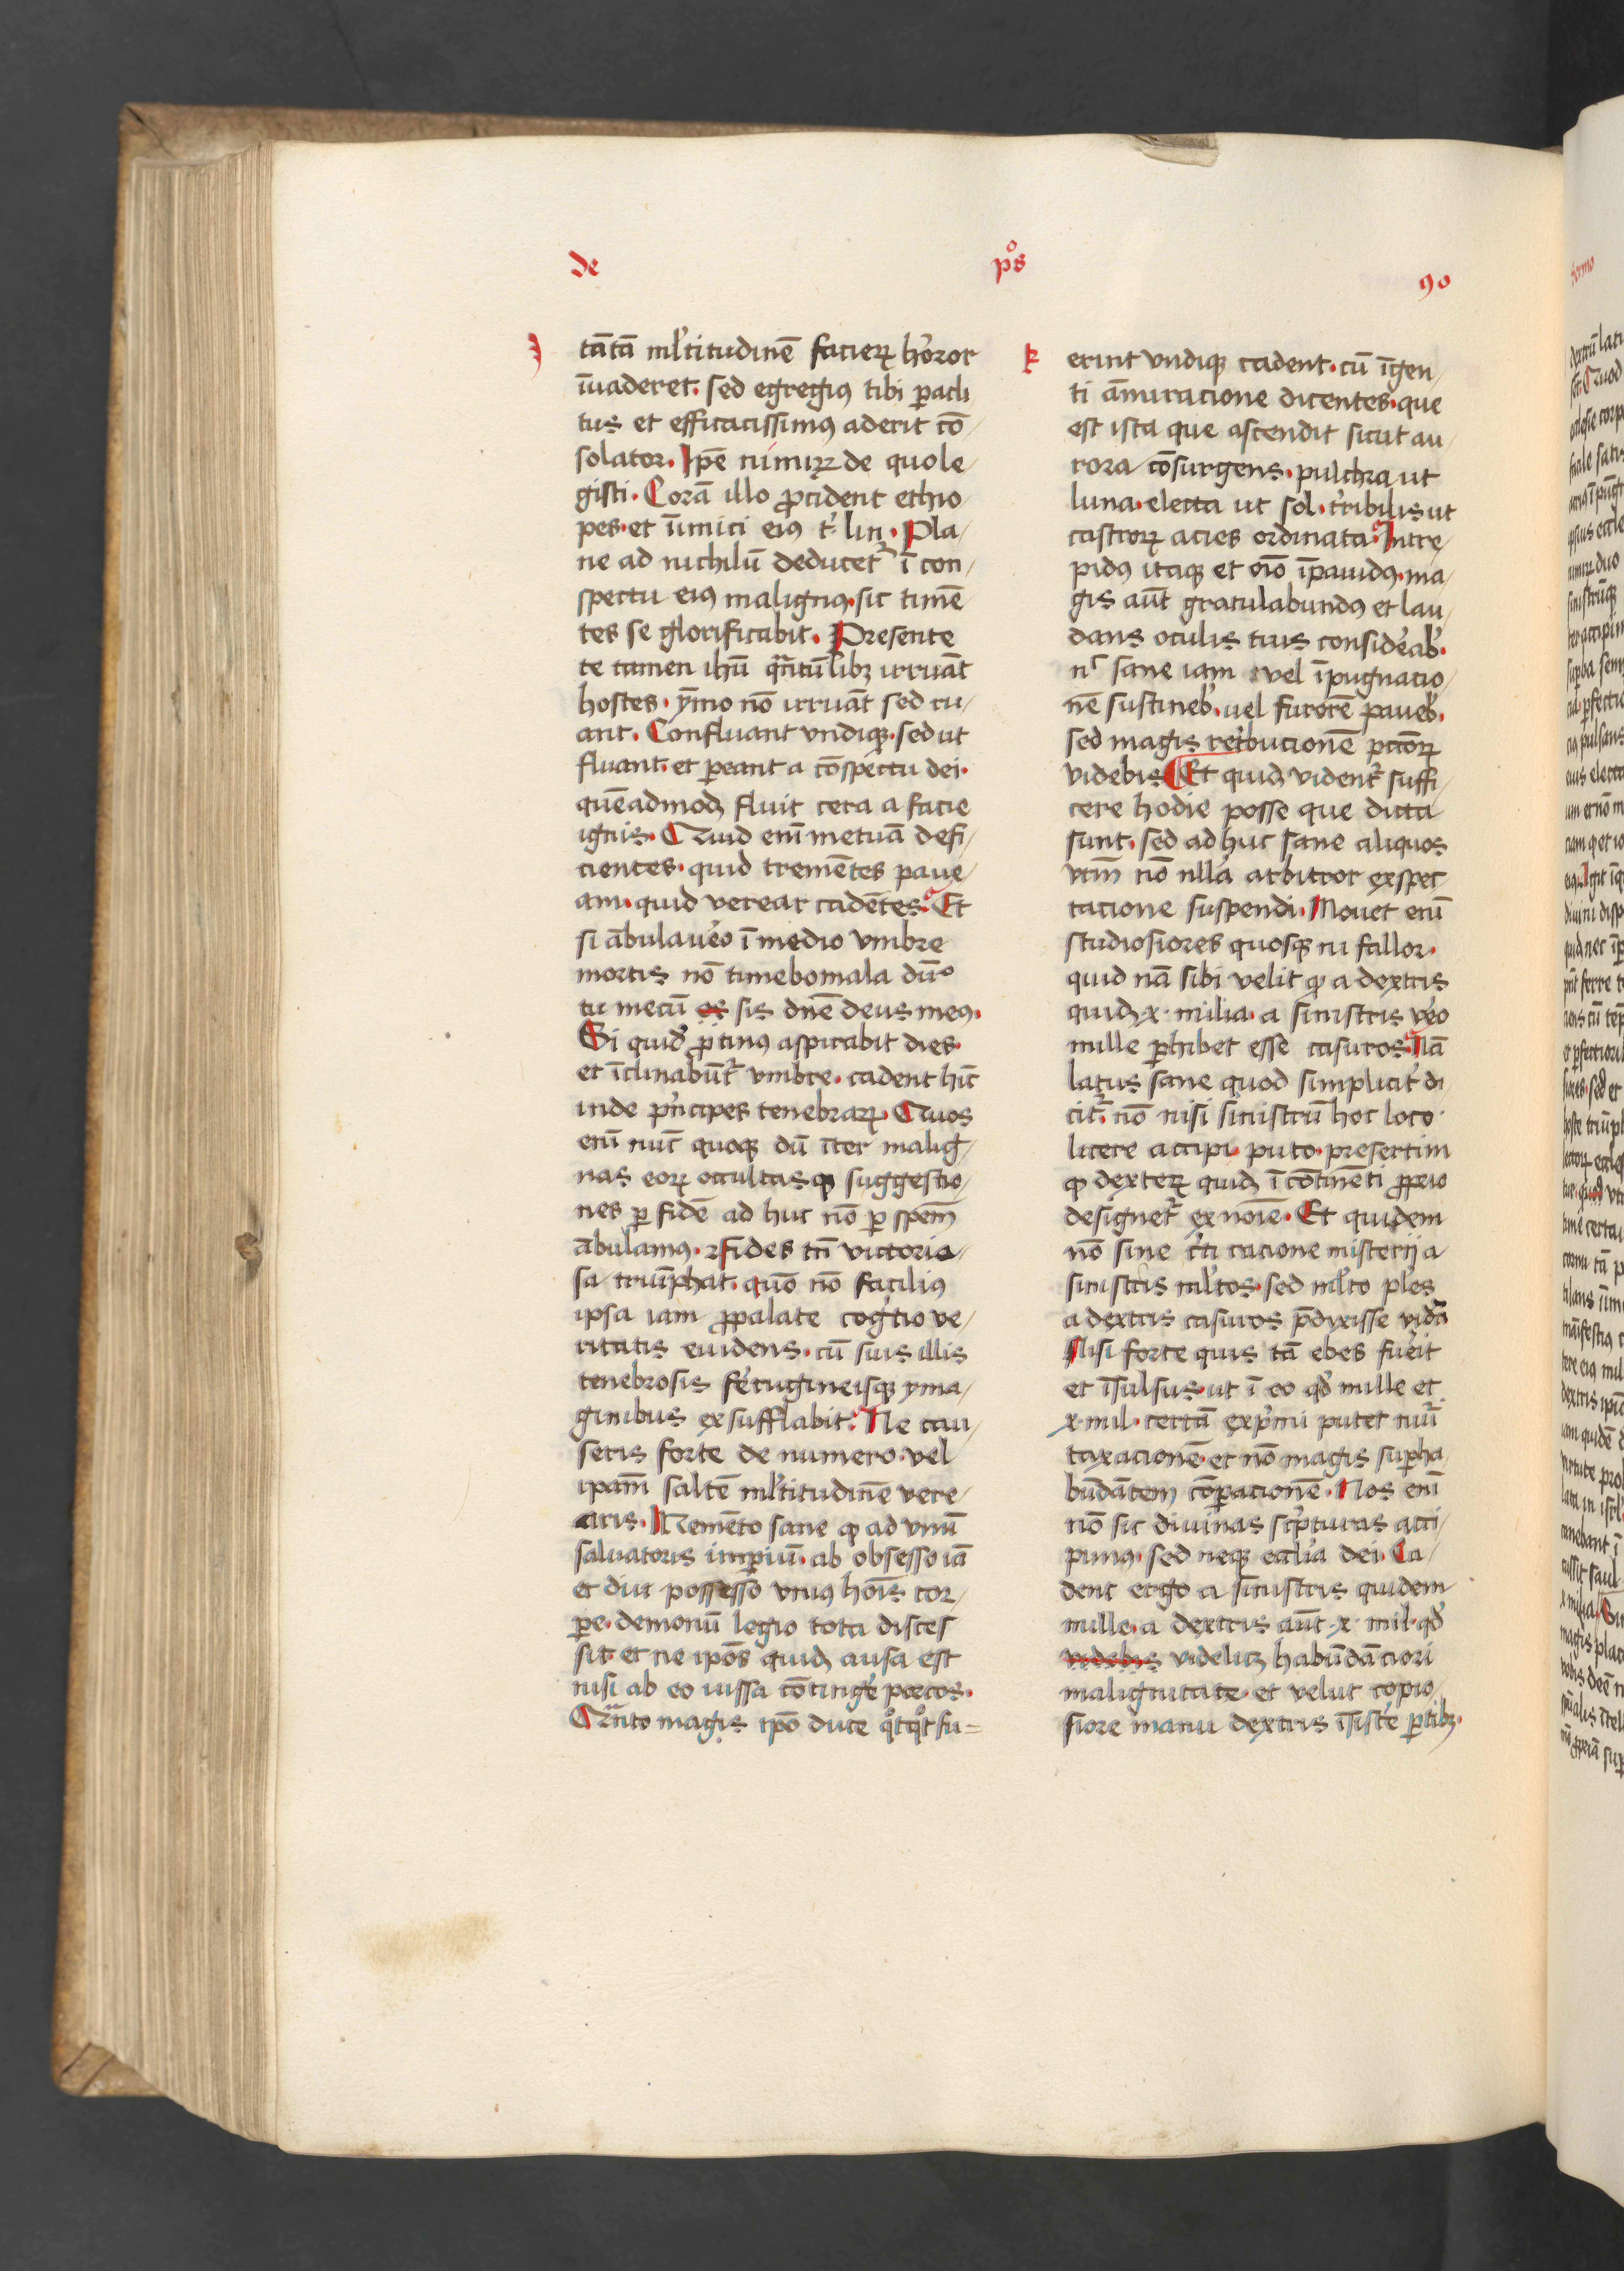 de
pͦs
90
J
tātā ml̄titudinē facierꝝ hoꝛror
īuaderet. sed egregiꝰ tibi ꝑacli
tus et efficacissimꝰ aderit cō
solator. Ip̄e nimiꝝ de quo le
gisti. Corā illo ꝓcident ethio
pes. et īimici eiꝰ t̄. lin. Pla
ne ad nichilū deducet᷑ ī con
spectu eiꝰ malignꝰ. sic timē
tes se glorificabit. Presente
te tamen ihū q̄ntūlibꝫ irruāt
hostes. ymo nō irruāt sed ru
ant. Confluant vndiqꝫ. sed ut
fluant. et ꝑeant a cōspectu dei.
quēadmodꝫ fluit cera a facie
ignis. Quid eni̅ metuā defi
cientes. quid tremētes paue
am. quid verear cadētes. Et
si ābulaueo ī medio vmbre
mortis nō timebo mala dū
tu mecū es sis dn̄e deus meꝰ.
Si quid ꝓtinꝰ aspirabit dies.
et īclinabūt᷑ vmbre. cadent hīc
inde pͥncipes tenebrarꝝ. Quos
eni̅ nūc quoqꝫ dū īter malig
nas eorꝝ occultasqꝫ suggestio
nes ꝑ fidē ad huc nō ꝑ spem̄
ābulamꝰ. ꝛ fides tn̄ victorio
sa triūphat. quō nō facilius
ipsa iam ꝓpalate coḡtio ve
ritatis euidens. cū suis illis
tenebrosis ferugineisqꝫ yma
ginibus exsufflabit. Ne cau
seris forte de numero. vel
ip̄am saltē ml̄titudinē vere
aris. Memēto sane ꝙ ad vnū
saluatoris imꝑiū. ab obsesso iā
et diu possesso vniꝰ hōis cor
ꝑe. demoniū legio tota disces
sit. et ne ip̄os quidꝫ ausa est
nisi ab eo iussa cōtinge porcos.
Qͣnto magis xp̄o duce qͦtqͦt fu=
k
erint vndiqꝫ cadent. cū īgen
ti āmiracione dicentes. que
est ista que ascendit sicut au
rora cōsurgens. pulchra ut
luna. electa ut sol. t̄ribilis ut
castrorꝝ acies ordinata. Intre
pidꝰ itaqꝫ et oīo īpauidꝰ. ma
gis aūt gratulabundꝰ et lau
dans oculis tuis consideab̄.
nͥ sane iam vel īpugnatio
nē sustineb̄. uel furorē paueb̄.
sed magis ret̄bucionē pctōrꝝ
videbis. Et quidꝫ vident᷑ suffi
cere hodie posse que dicta
sunt. sed ad huc sane aliquos
vr̄m nō nlla arbitror expec
tacione suspendi. Mouet eni̅
studiosiores quosqꝫ ni fallor.
quid nā sibi velit ꝙ a dextris
quidꝫ x. milia. a sinistris veo
mille ꝑhibet esse casuros. Nā
latus sane quod simplicit̄ di
cit᷑. nō nisi sinistrū hoc loco
licere accipi. puto. presertim
ꝙ dexterꝝ quidꝫ ī cōtinēti ꝓprio
designet᷑ ex noīe. Et quidem
nō sine c̄ti racione misterij a
sinistris ml̄tos. sed ml̄to pl̄es
a dextris casuros p̄dixisse vidᷓ
Nisi forte quis tā ebes fueit
et īsulsus. ut ī eo qd̄ mille et
x. mil. certā expͥmi putet nūi
taxacionē. et nō magis suꝑha
būdātem cōꝑacionē. Nos eni̅
nō sic diuinas scͥpturas acci
pimꝰ. sed neqꝫ eccl̄ia dei. Ca
dent ergo a sinistris quidem
mille. a dextris aūt x. mil. qd̄
videbis videlicꝫ habūdāciori
malignitate. et velut copio
siore manu dextris īsiste ꝑtibꝫ.